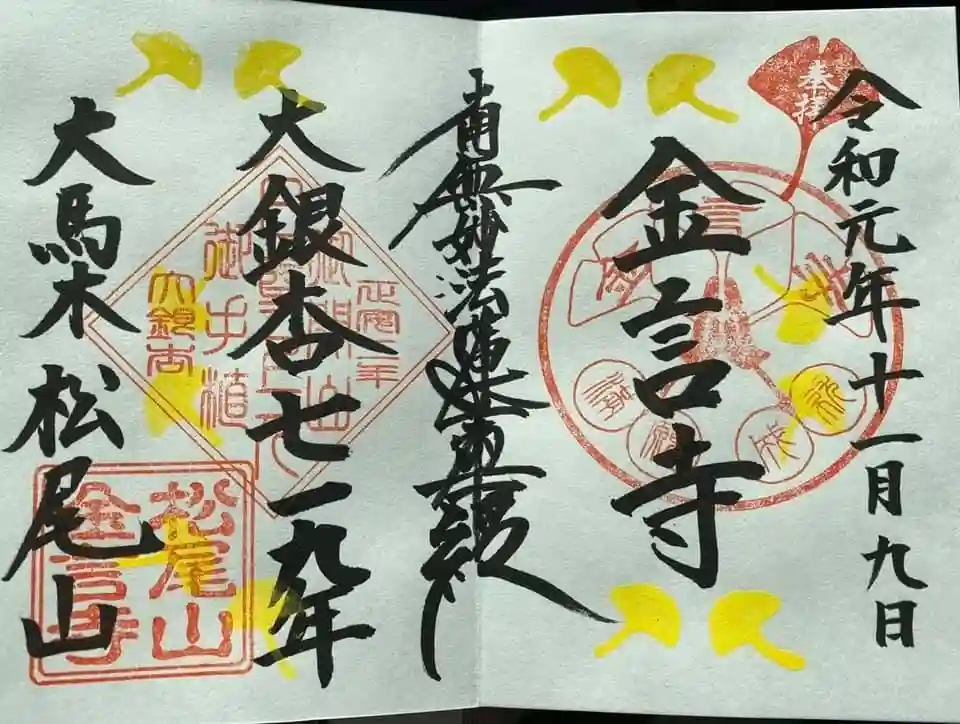 奉拝
令和元年十一月九日
金言寺
南無妙法蓮華経
大銀杏七一九年
御手植
大馬木 松尾山
松尾山
金言寺